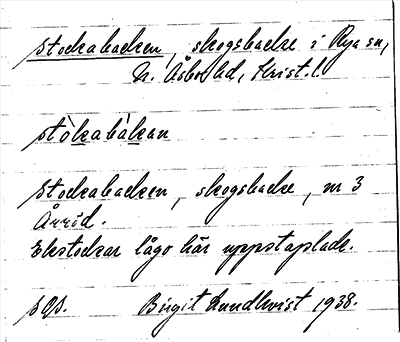 Stockabacken, skogsbacke i Rya sn,
N. Åsbo hd, Krist. l.
stòkabàkan
Stockabacken, skogsbacke, nr 3
Årröd.
Ekstockar lågo här uppstaplade.
sgs. Birgit Lundkvist 1938.